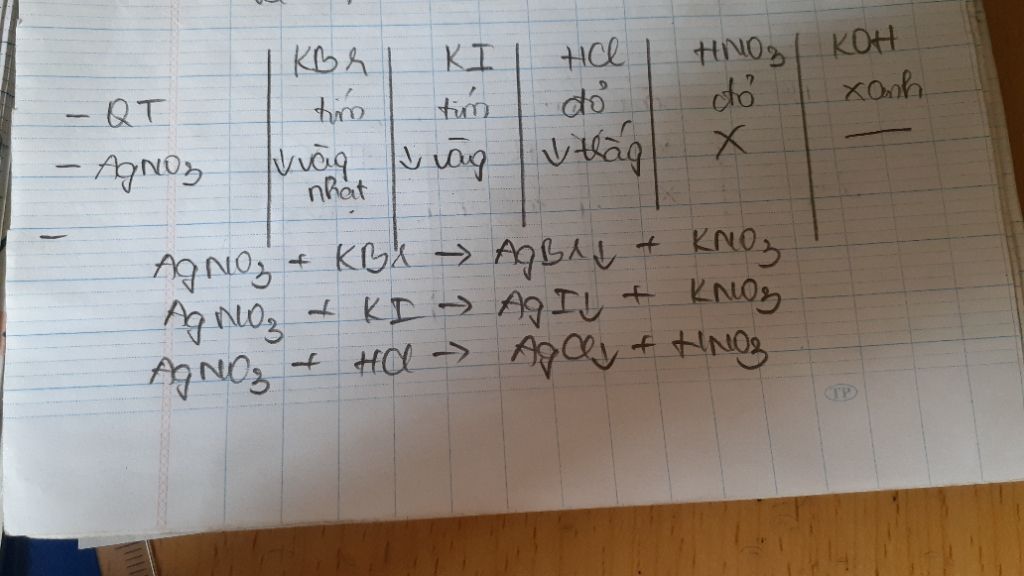 KBr KI HCl HNO3 KOH
- QT tím tím đỏ đỏ xanh
- AgNO3 ↓vàg ↓vàg ↓trắg X —
nhạt
-
AgNO3 + KBr → AgBr↓ + KNO3
AgNO3 + KI → AgI↓ + KNO3
AgNO3 + HCl → AgCl↓ + HNO3
TP